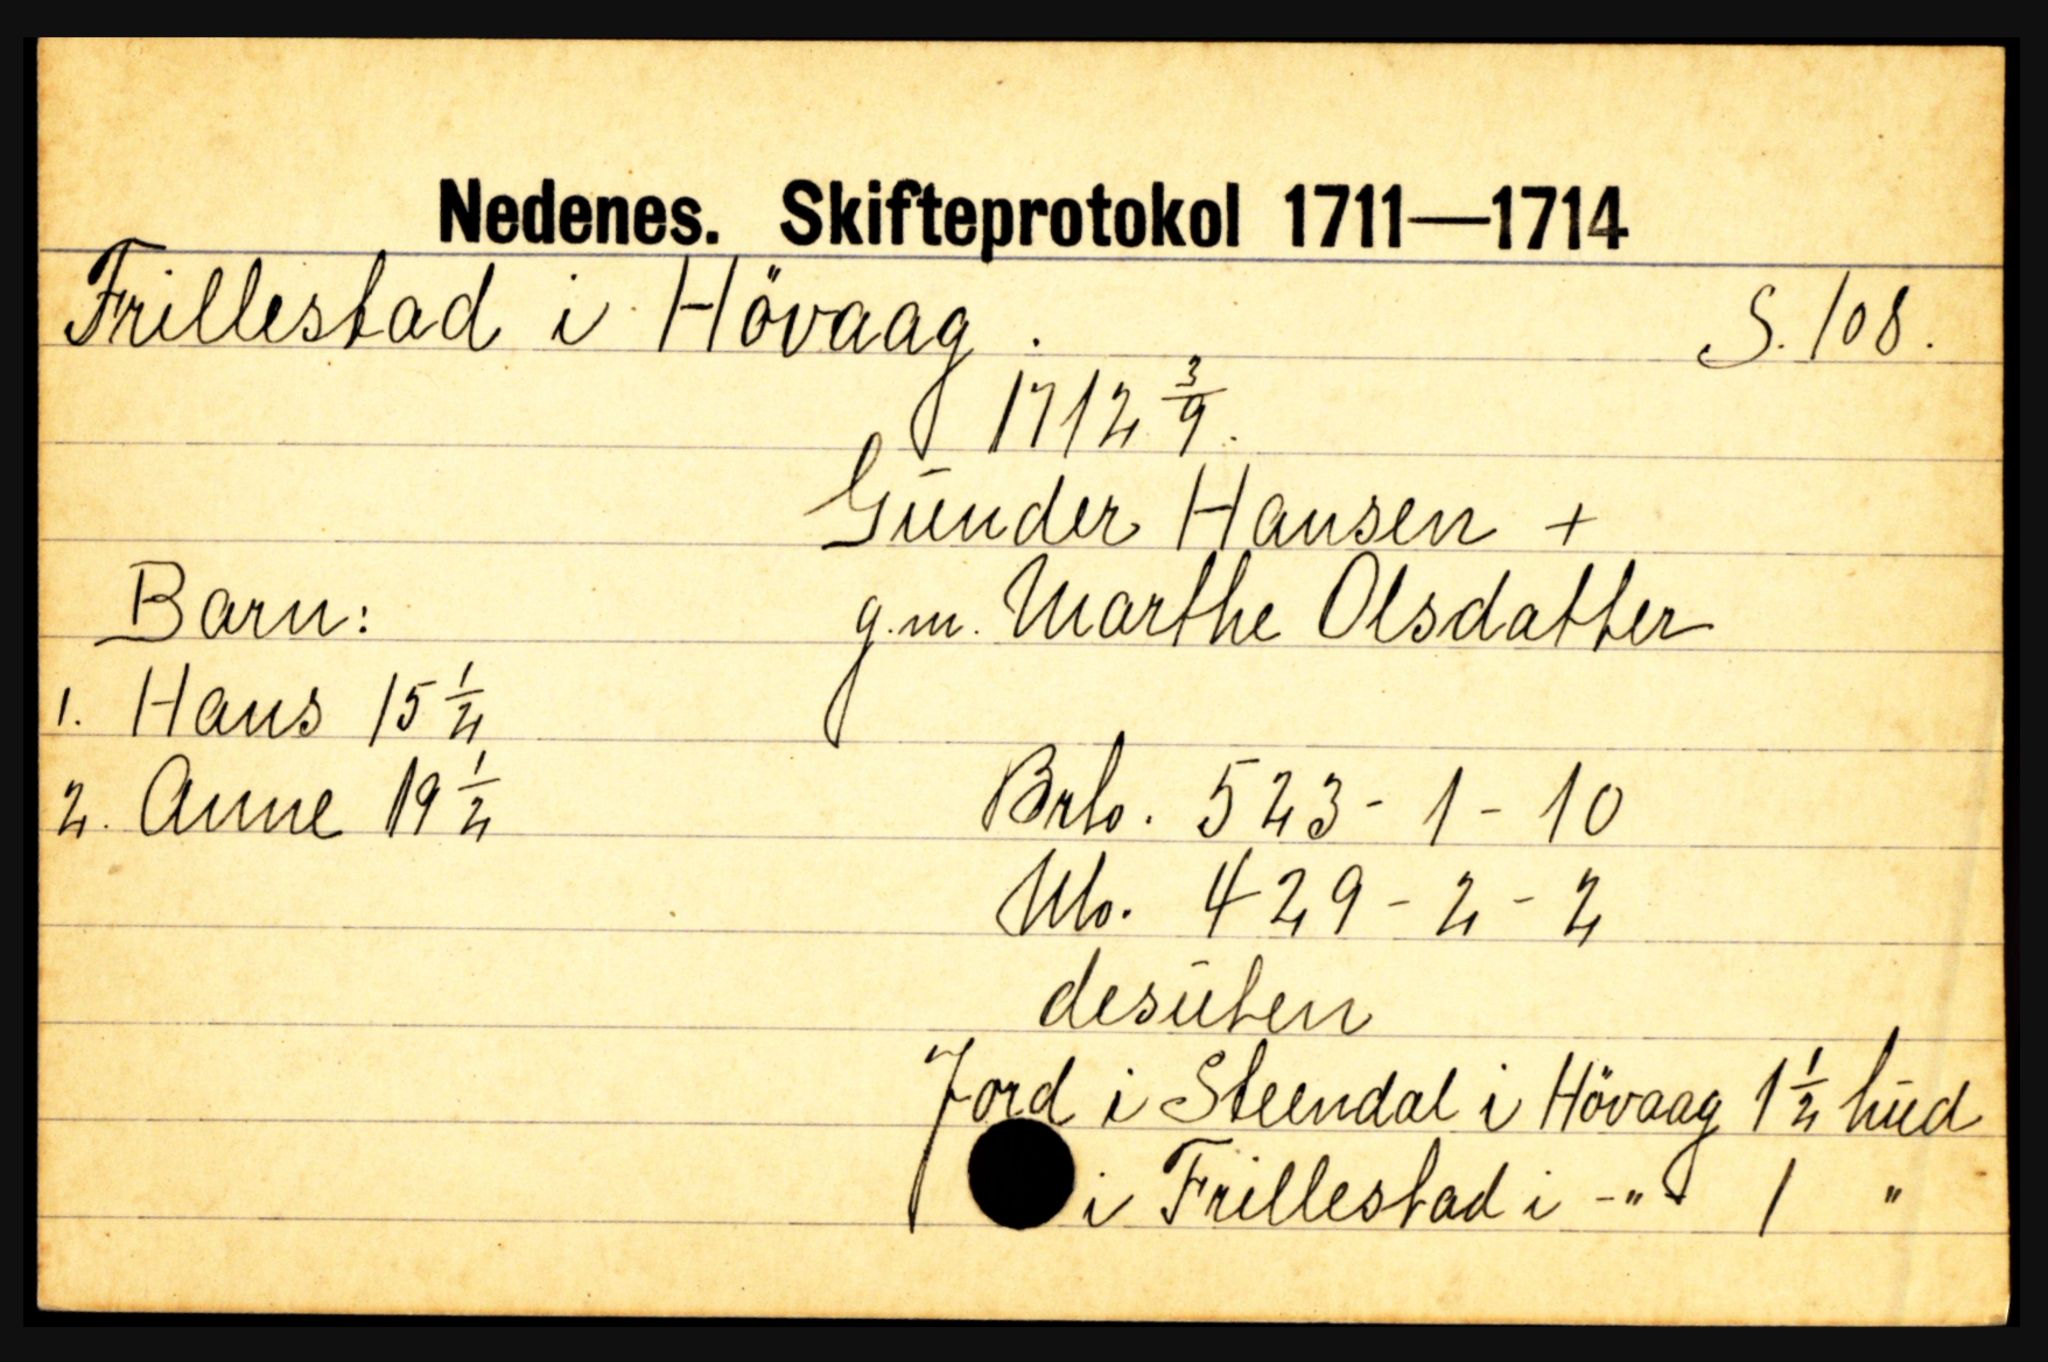 Nedenes. Skifteprotokol 1711—1714
Frillestad i Hövaag. S. 108.
1712 3/9.
Gunder Hansen +
Barn: g.m. Marthe Olsdatter
1. Hans 15 1/2
2. Anne 19 1/2 Brlo. 523 - 1 - 10
Nlo. 429 - 2 - 2
desuten
Jord i Steendal i Hövaag 1 1/2 hud
i Frillestad i -"- 1 "